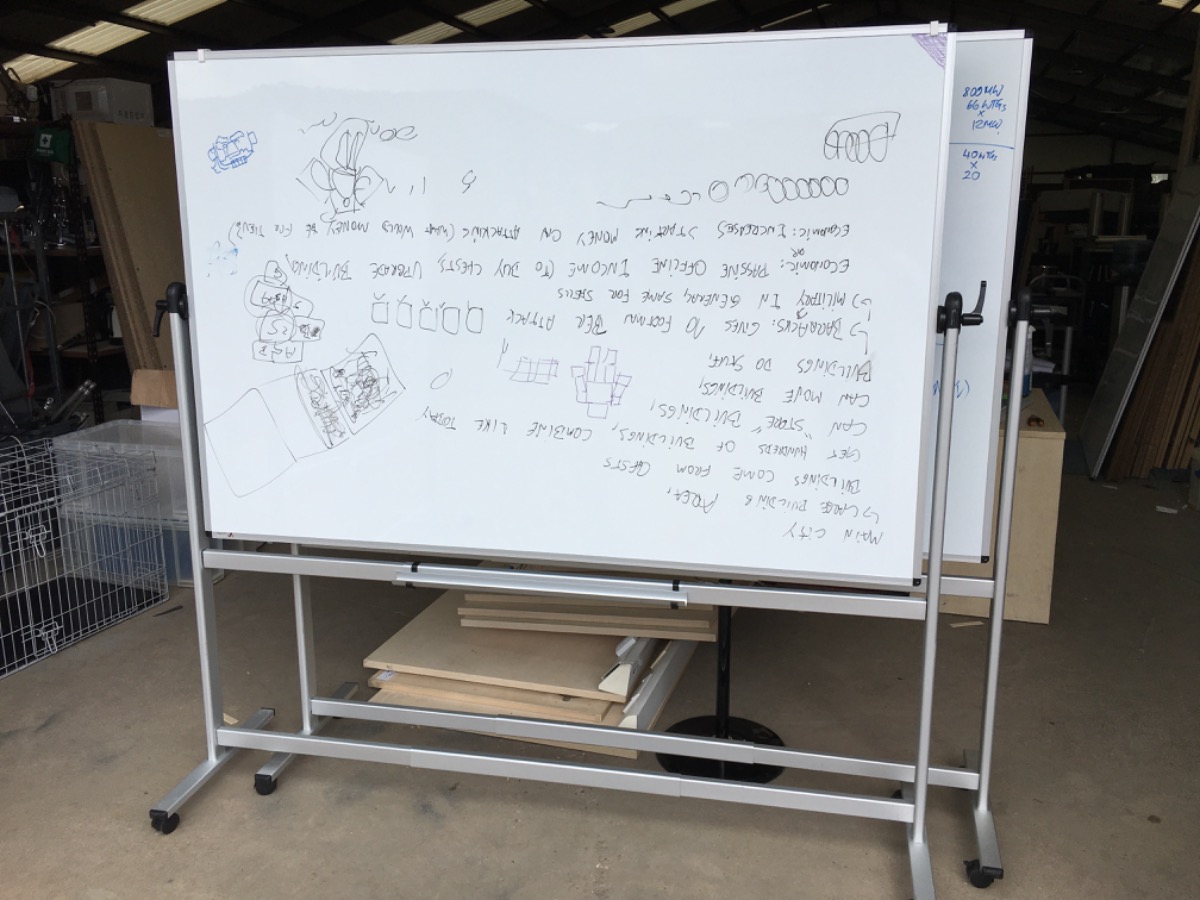 MAIN CITY
↳ LARGE BUILDING AREA,
BUILDINGS COME FROM CHESTS
GET HUNDREDS OF BUILDINGS, COMBINE LIKE TODAY
CAN "STORE" BUILDINGS,
CAN MOVE BUILDINGS,
BUILDINGS DO STUFF,
↳ BARRACKS: GIVES 10 FOOTMAN PER ATTACK
↳ MILITARY IN GENERAL, SAME FOR SPELLS
ECONOMIC: PASSIVE OFFLINE INCOME (TO BUY CHESTS, UPGRADE BUILDING)
OR
ECONOMIC: INCREASES STARTING MONEY ON ATTACKING (WHAT WOULD MONEY BE FOR THEN?)
800MW
66 WTGs
x
12MW
40 WTGs
x
20